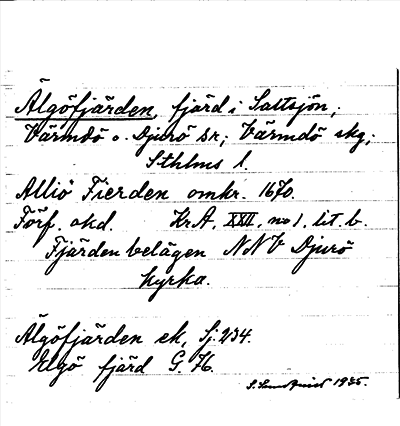 Älgöfjärden, fjärd i Saltsjön;
Värmdö o. Djurö sr; Värmdö skg;
Sthlms l.
Alliö Fierden omkr. 1670.
Förf. okd. KrA, XXII, no 1, lit. b.
Fjärden belägen NNV Djurö
kyrka.
Älgöfjärden ek, Sj. 234.
Elgö fjärd G. 76.
S. Sundquist 1935.